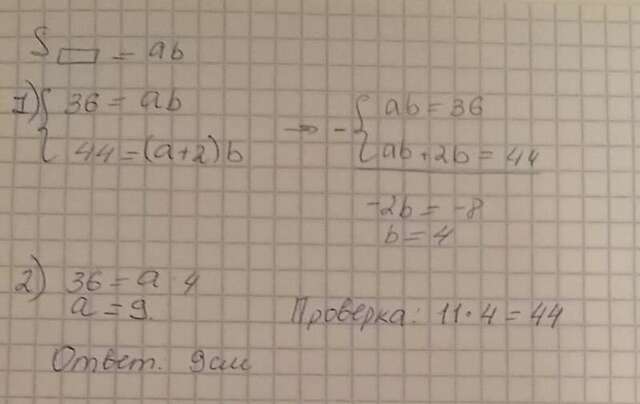 S▭ = ab
1) { 36 = ab
44 = (a+2)b
⇒ - { ab = 36
ab + 2b = 44
-2b = -8
b = 4
2) 36 = a · 4
a = 9.
Проверка: 11 · 4 = 44
Ответ. 9см